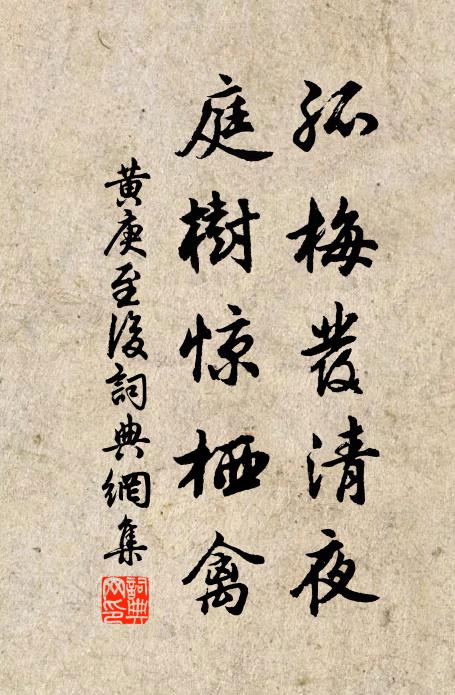 孤梅發清夜
庭樹惊栖禽
黄庚至後詞典網集
詞典
网印